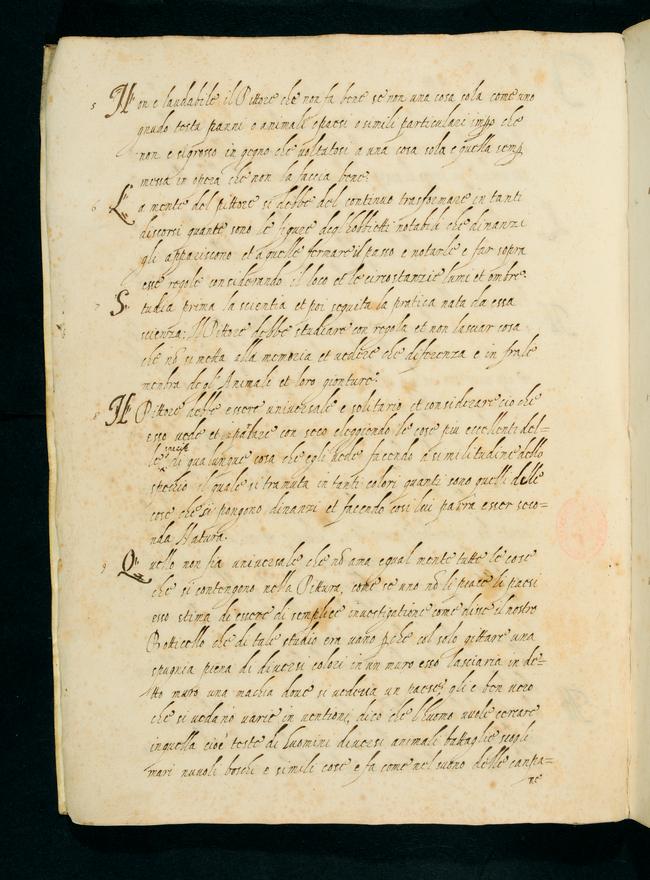 5 Non e laudabile il Pittore che non fa bene se non una cosa sola come uno
gnudo testa panni e animali e paesi e simili particulari impo che
non e si grosso in gegno che voltatosi a una cosa sola e quella semp
messa in opera che non la faccia bene.
6 La mente del pittore si debbe del continuo trasformare in tanti
discorsi quante sono le figure degl'hobbietti notabili che dinanzi
gli appariscano et a quelle fermare il passo e notarle e far sopra
esse regole considerando il loco et le circostanzie lumi et ombre.
7 Studia prima la scientia et poi seguita la pratica nata da essa
scienza; Il Pittore debbe studiare con regola et non lasciar cosa
che nō si metta alla memoria et vedere che diferenza e in fra le
membra degl'Animali et loro gionture.
8 Il Pittore debbe essere universale e solitario et considerare ciò che
esso vede et parlare con seco eleggiendo le cose piu eccellenti del=
le specie di qualunque cosa che egli vede facendo a similitudine dello
specchio il quale si tramuta in tanti colori quanti sono quelli delle
cose che si pongono dinanzi et facendo cosi lui parra esser seco=
nda Natura.
9 Quello non fia universale che nō ama egualmente tutte le cose
che si contengono nella Pittura, come se uno nō li piace li paesi
esso stima di essere di semplice investigatione come disse il nostro
Botticello che di tale studio era vano p̄che col solo gittare una
spugnia piena di diversi colori in un muro esso lasciaria in de=
tto muro una machia dove si vedeva un paese; gli e ben vero
che si vedano varie in ventioni, dico che l'huomo vuole cercare
in quella cioe teste di huomini diversi animali battaglie scogli
mari nuvoli boschi e simili cose e fa come nel suono delle campa=
ne